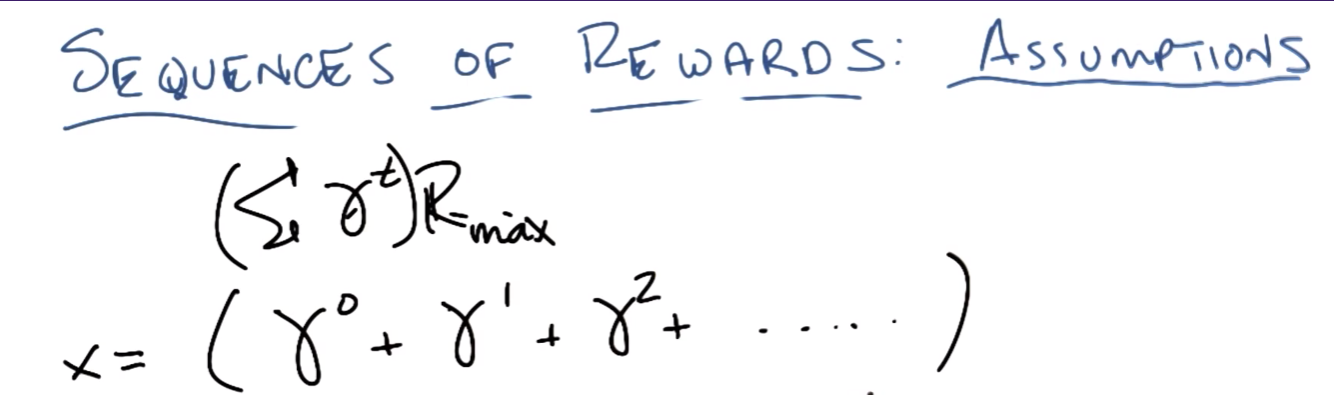 SEQUENCES OF REWARDS: ASSUMPTIONS
(∑ γ^t) R_max
x = ( γ^0 + γ^1 + γ^2 + ..... )